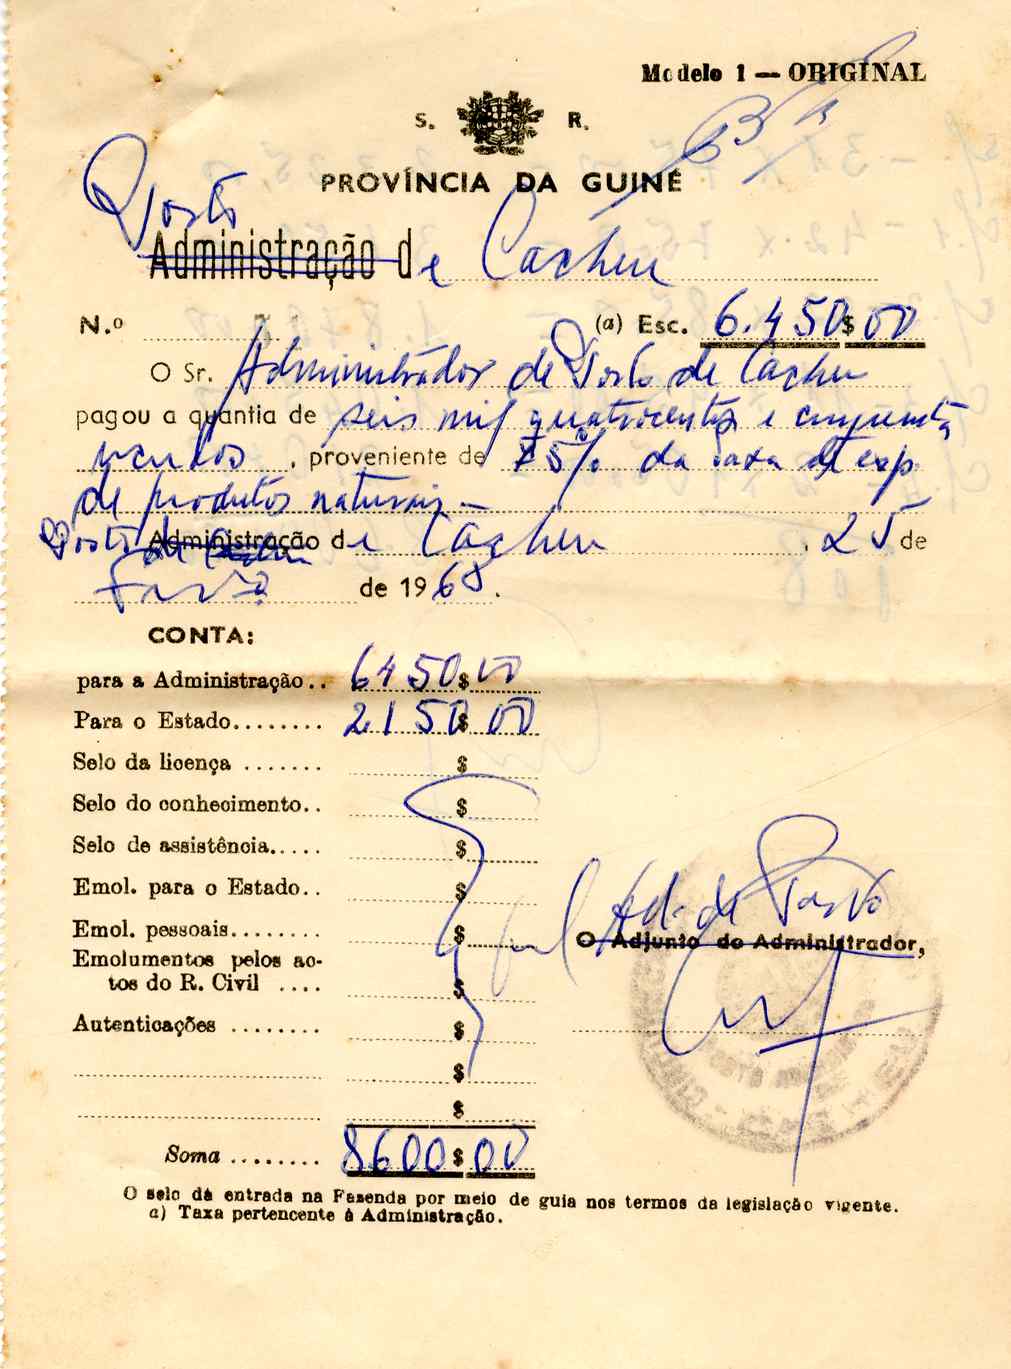 Modelo 1 — ORIGINAL
S. R.
PROVÍNCIA DA GUINÉ
Posto
Administração de Cacheu
N.º (a) Esc. 6.450$00
O Sr. Administrador do Posto de Cacheu
pagou a quantia de seis mil quatrocentos e cinquenta
escudos, proveniente de 75% da taxa de exp.
de produtos naturais.—
Posto Administração de Cacheu, 25 de
de 1968.
CONTA:
para a Administração.. 6450$00
Para o Estado........ 2150$00
Selo da licença ....... $
Selo do conhecimento.. $
Selo de assistência..... $
Emol. para o Estado.. $
Emol. pessoais........ $
Emolumentos pelos ac-
tos do R. Civil .... $
Autenticações ........ $
$
$
Soma ........ 8600$00
Ad. de Posto
O Adjunto do Administrador,
O selo dá entrada na Fazenda por meio de guia nos termos da legislação vigente.
a) Taxa pertencente à Administração.